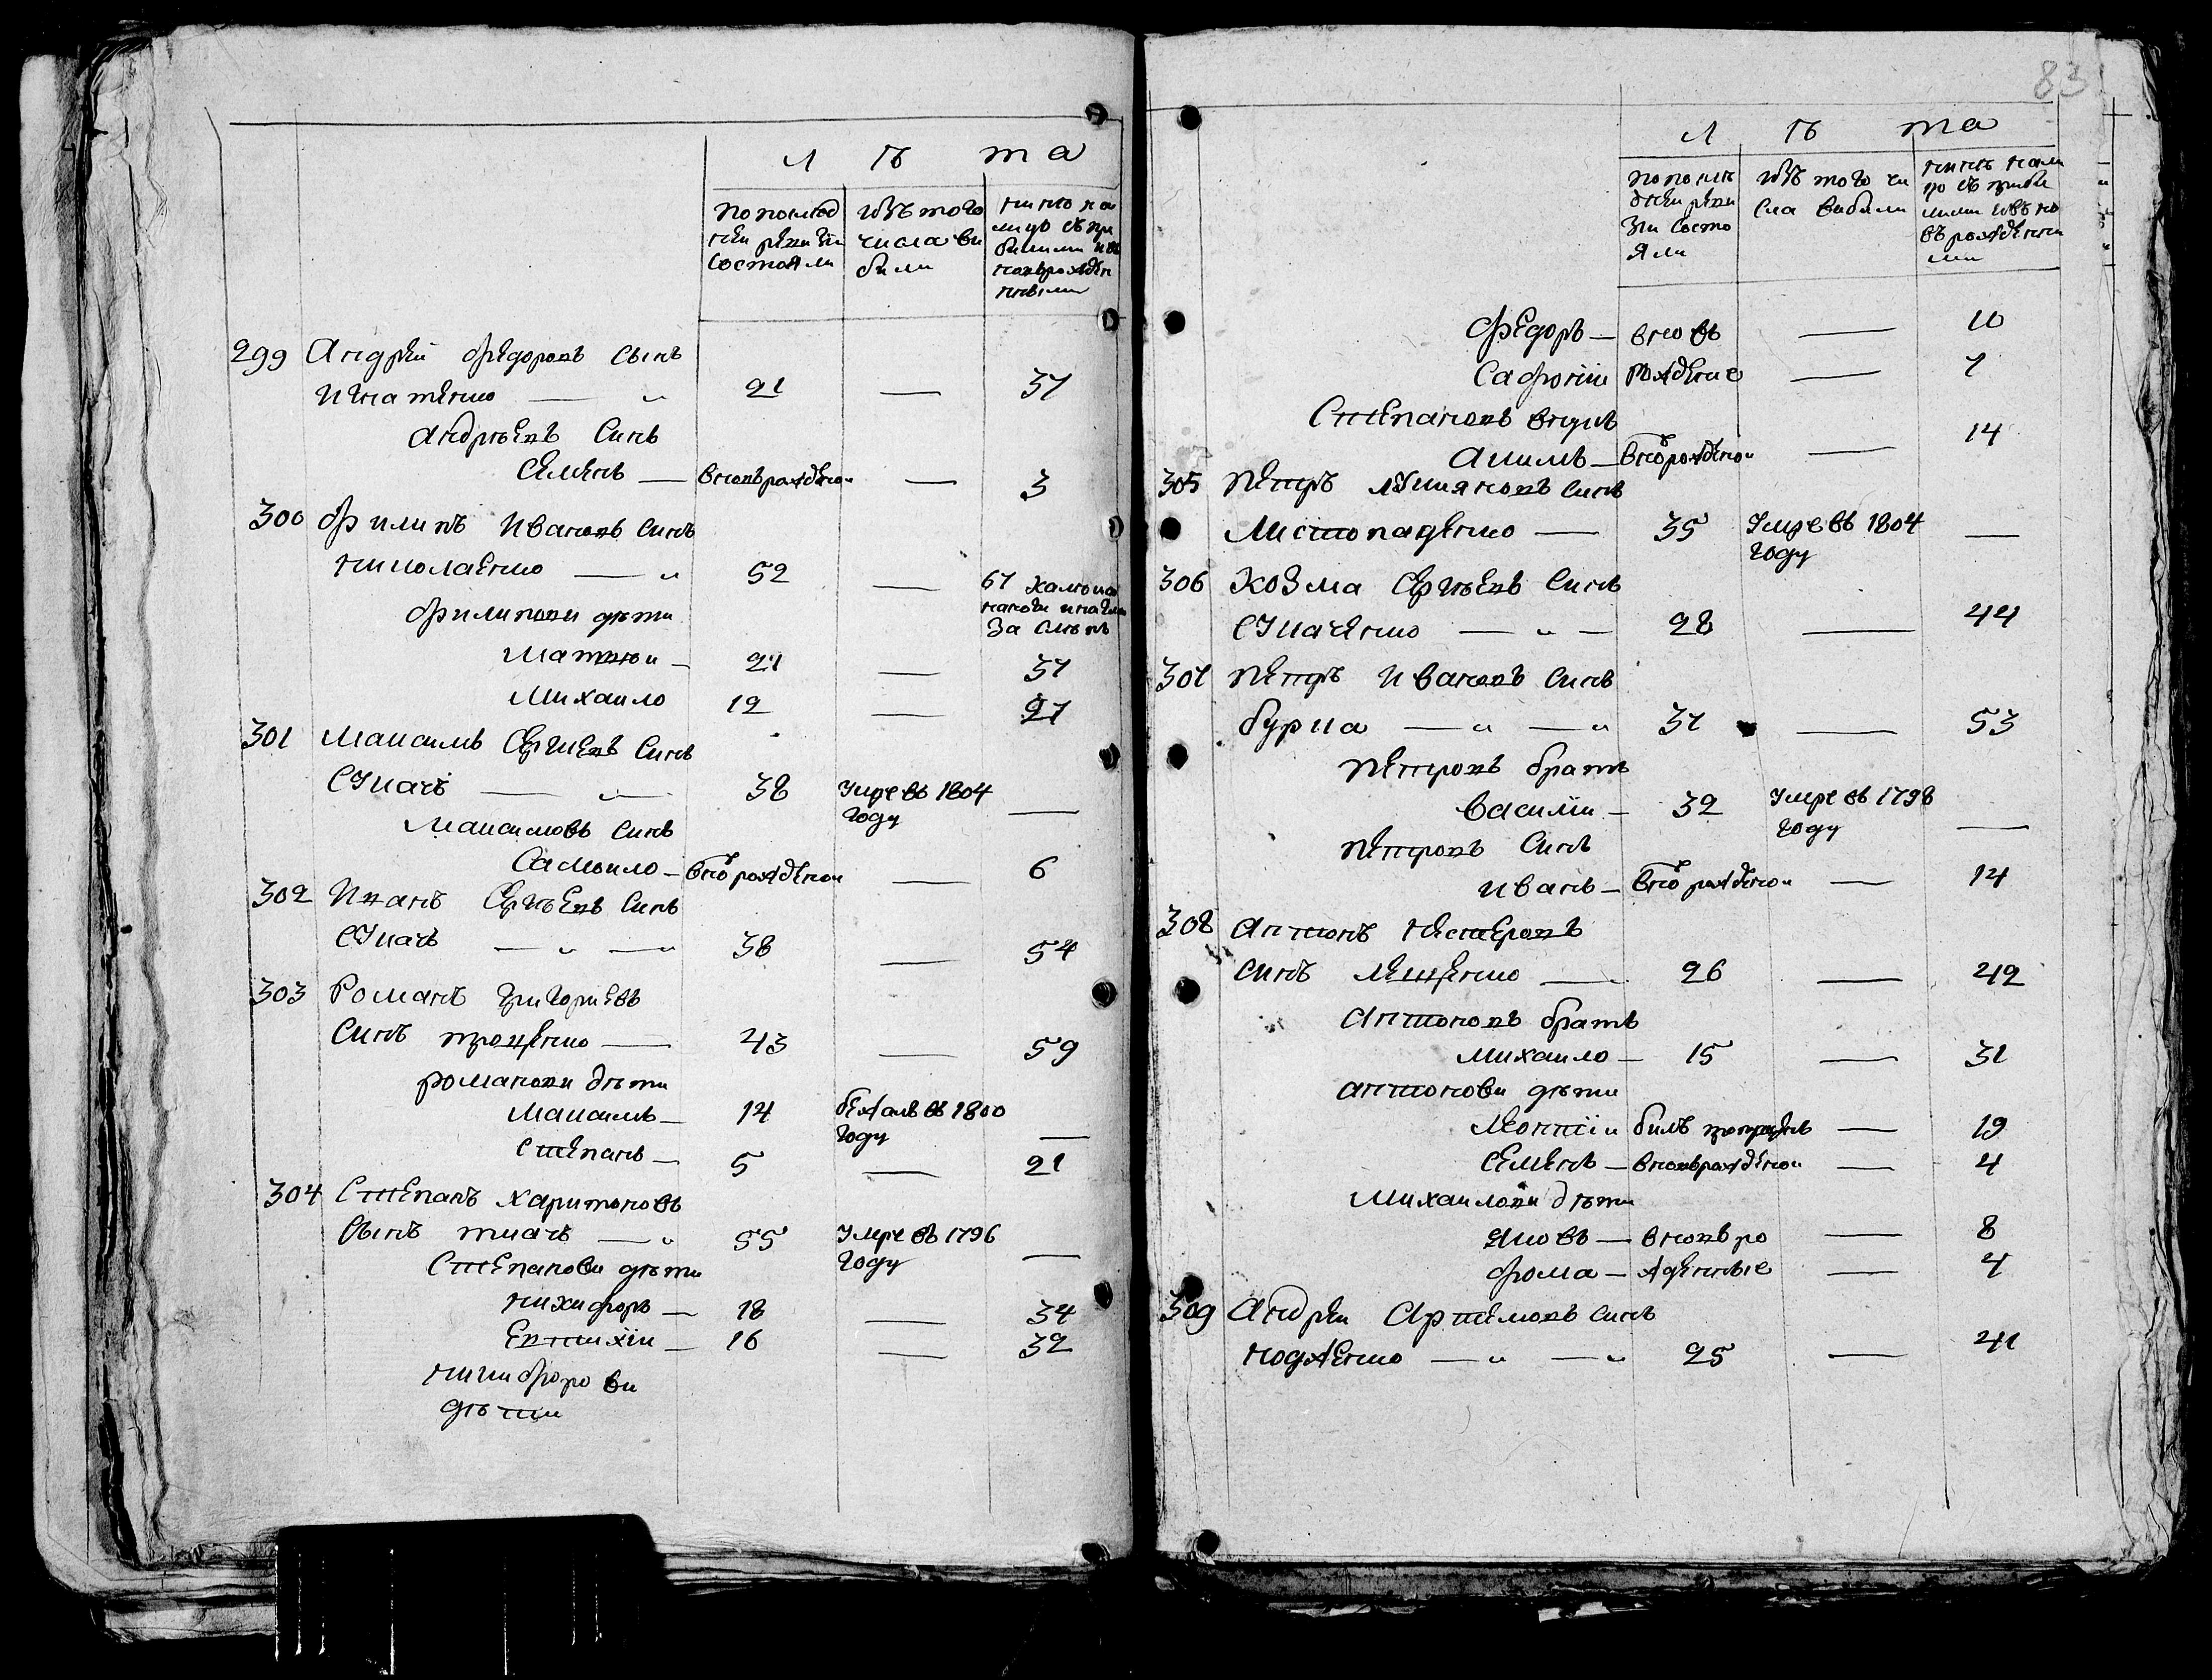 Л Ѣ та
По послед
ней ревизии
состояли
Изъ того
числа вы
были
Ныне на
лицо съ при
былыми и въ
новърожден
ными
299 Андрей Федоровъ сынъ
Игнатенко — „ 21 — 37
Андреевъ синъ
Семенъ — вновърожденои — 3
300 Филипъ Ивановъ синъ
Николаенко — „ 52 — 67
за слепъ
Филипови дети
Матвеи — 21 — 37
Михаило 12 — 27
301 Максимъ Сергеевъ синъ
Сукачъ — „ — 38 Умре въ 1804
году —
Максимовъ синъ
Самоило — вновърожденои — 6
302 Иванъ Сергеевъ синъ
Сукачъ — „ — „ 38 — 54
303 Романъ Григориевъ
синъ Троценко — 43 — 59
Романови дети
Максимъ — 14 бежалъ въ 1800
году —
Степанъ — 5 — 21
304 Степанъ Харитоновъ
сынъ Ткачъ — „ 55 Умре въ 1796
году —
Степанови дети
Никифоръ — 18 — 34
Евтихии — 16 — 32
Никифорови
дети
83
Л Ѣ та
По после
дней реви
зии состо
яли
Изъ того чи
сла выбыли
Ныне нали
цо съ прибы
лыми и въ но
въ рожденны
ми
Федоръ — вновь — 10
Софронии рожденые — 7
Степановъ внукъ
Акимъ — вновърожденои — 14
305 Петръ Лукияновъ синъ
Листопаденко — 35 Умре въ 1804
году —
306 Козма Сергеевъ синъ
Сукаченко — „ — 28 — 44
307 Петръ Ивановъ синъ
Бурка — „ — „ 37 — 53
Петровъ братъ
Василии — 32 Умре въ 1798
году —
Петровъ синъ
Иванъ — вновърожденои — 14
308 Антонъ Нестеровъ
синъ Лещенко — 26 — 42
Антоновъ братъ
Михаило — 15 — 31
Антонови дети
Леонтии билъ пропущенъ — 19
Семенъ — вновърожденои — 4
Михаилови дети
Яковъ — вновъ ро — 8
Фома — жденные — 4
309 Андреи Артемовъ синъ
Коваленко — „ — „ 25 — 41